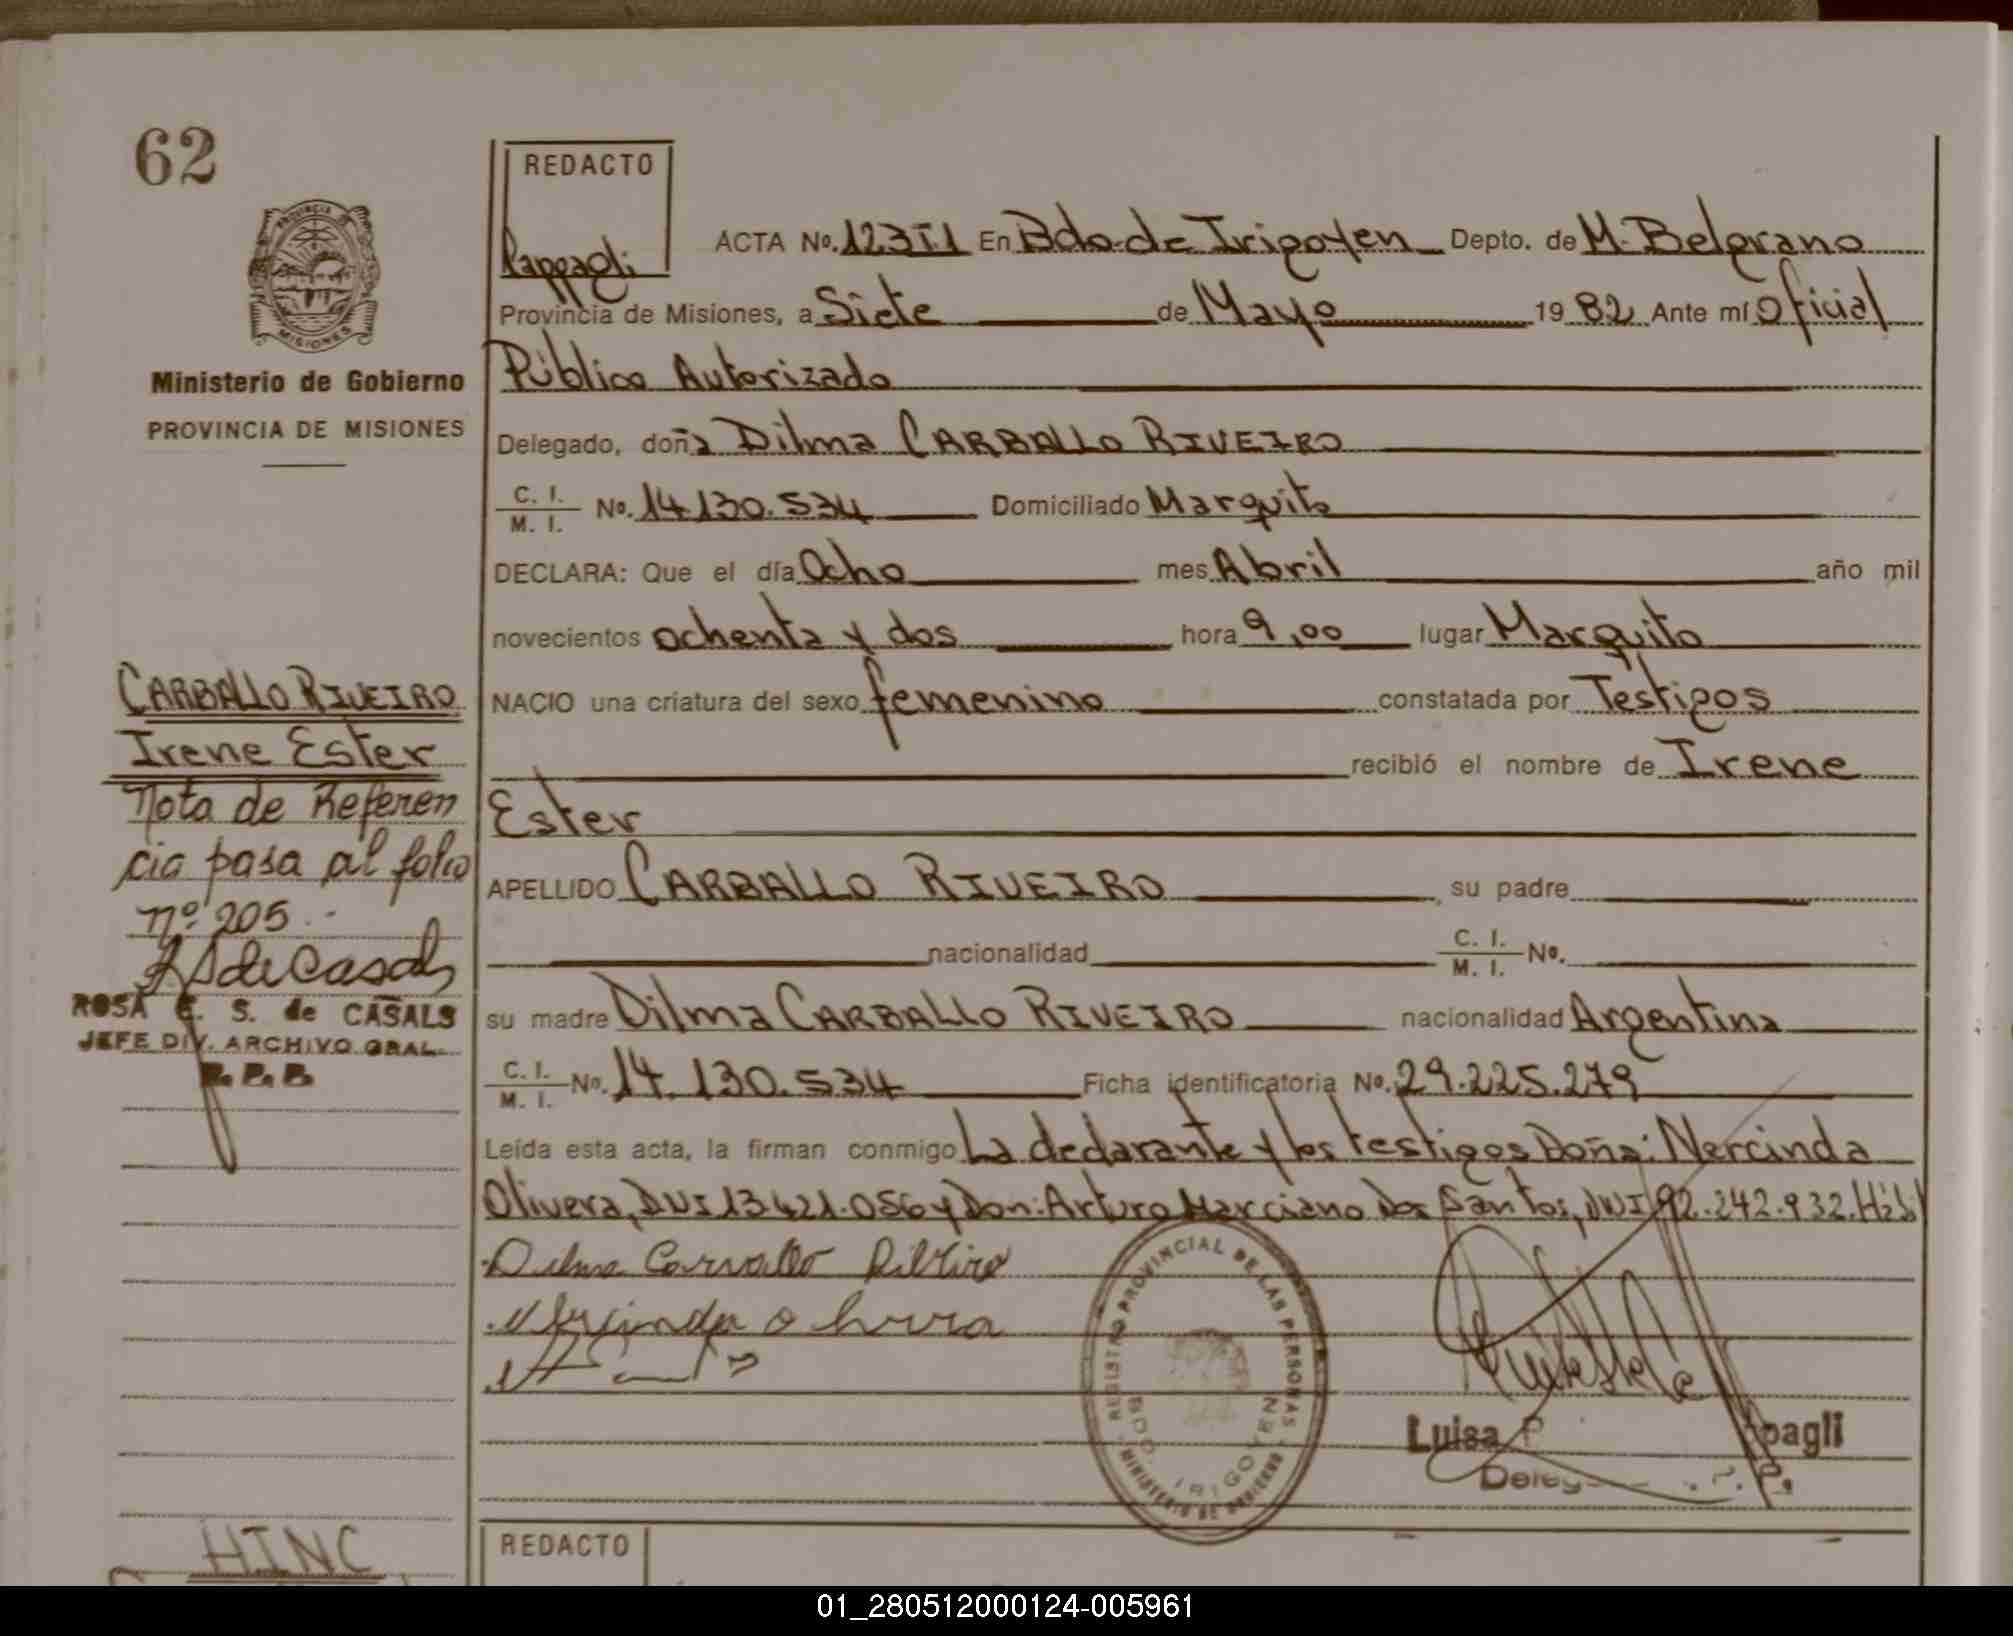 62
REDACTO
Pappagli
ACTA No. 123T1 En Bdo. de Irigoyen Depto. de M. Belgrano
Provincia de Misiones, a Siete de Mayo 19 82 Ante mí Oficial
Público Autorizado
PROVINCIA DE
MISIONES
Ministerio de Gobierno
PROVINCIA DE MISIONES
Delegado, doña Dilma CARBALLO RIVEIRO
C. I.
M. I. No. 14.130.534 Domiciliado Marquito
DECLARA: Que el día Ocho mes Abril año mil
novecientos ochenta y dos hora 9,00 lugar Marquito
NACIO una criatura del sexo femenino constatada por Testigos
recibió el nombre de Irene
Ester
APELLIDO CARBALLO RIVEIRO, su padre
nacionalidad C. I.
M. I. No.
su madre Dilma CARBALLO RIVEIRO nacionalidad Argentina
C. I.
M. I. No. 14.130.534 Ficha identificatoria No. 29.225.279
Leída esta acta, la firman conmigo La declarante y los testigos Doña: Nercinda
Olivera, DNI 13.421.056 y Don: Arturo Marciano Dos Santos, DNI 92.242.932. Hábil
Dilma Carvallo Ribeiro
Nercinda Olivera
CARBALLO RIVEIRO
Irene Ester
Nota de Referen
cia pasa al folio
nº 205.-
RS de Casals
ROSA E. S. de CASALS
JEFE DIV. ARCHIVO GRAL.
R. P. P.
REGISTRO PROVINCIAL DE LAS PERSONAS
MINISTERIO DE GOBIERNO
BDO. IRIGOYEN
Luisa P pagli
Deleg
HINC
REDACTO
01_280512000124-005961